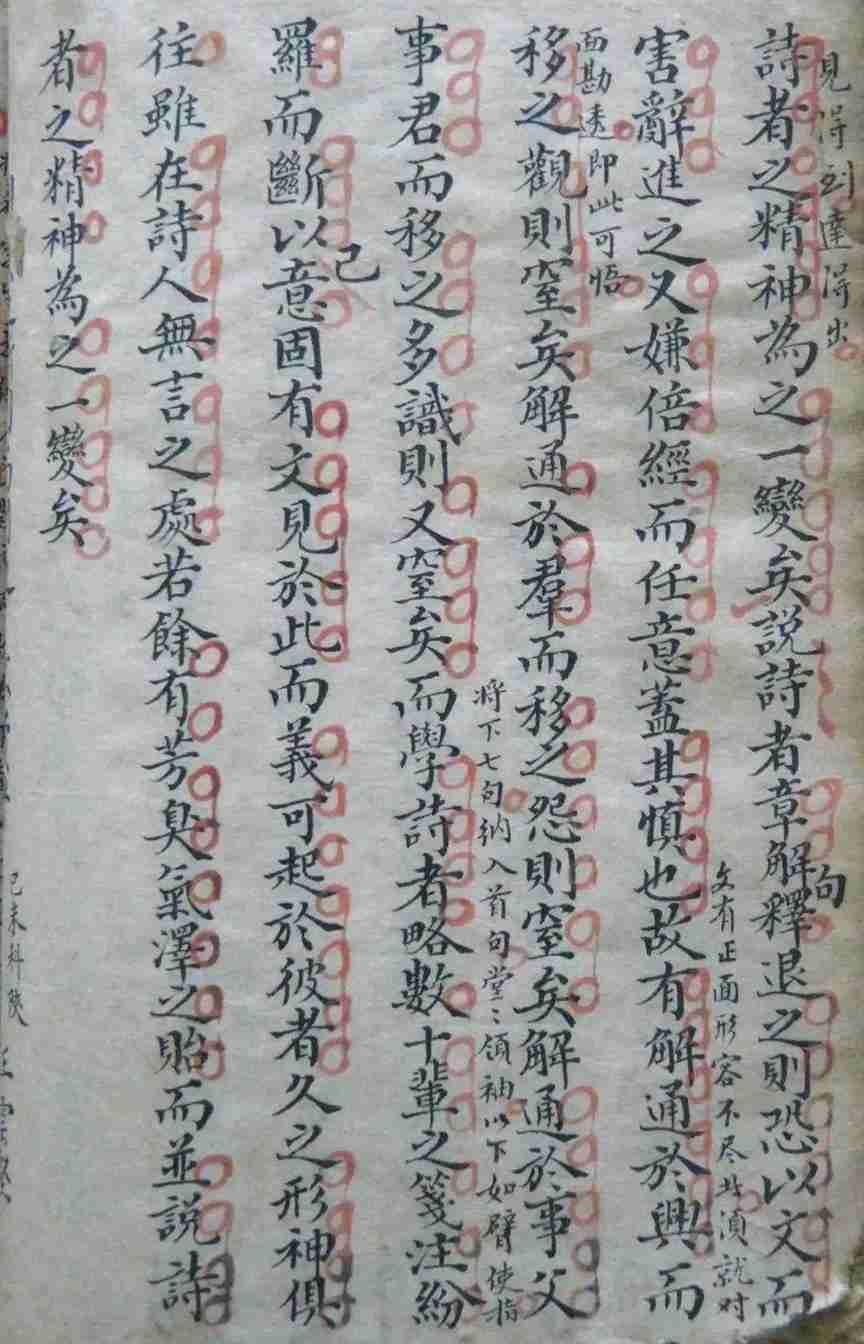 見得到達得出
詩者之精神為之一變矣説詩者章解釋退之則恐以文而
句
文有正面形容不尽出湏就对
害辭進之又嫌倍經而任意蓋其慎也故有解通於興而
面勘透即此可悟
移之觀則窒矣解通於羣而移之怨則窒矣解通於事父
將下七句納入首句堂〻領袖以下如臂使指
事君而移之多識則又窒矣而學詩者略數十輩之箋注紛
己
羅而斷以意固有文見於此而義可起於彼者久之形神俱
往雖在詩人無言之處若餘有芳臭氣澤之貽而並説詩
者之精神為之一變矣
己未科陝